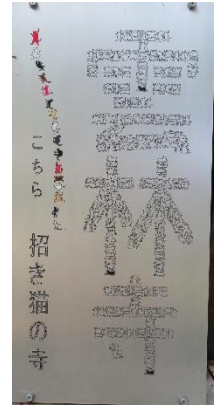 雲林寺
こちら 招き猫の寺